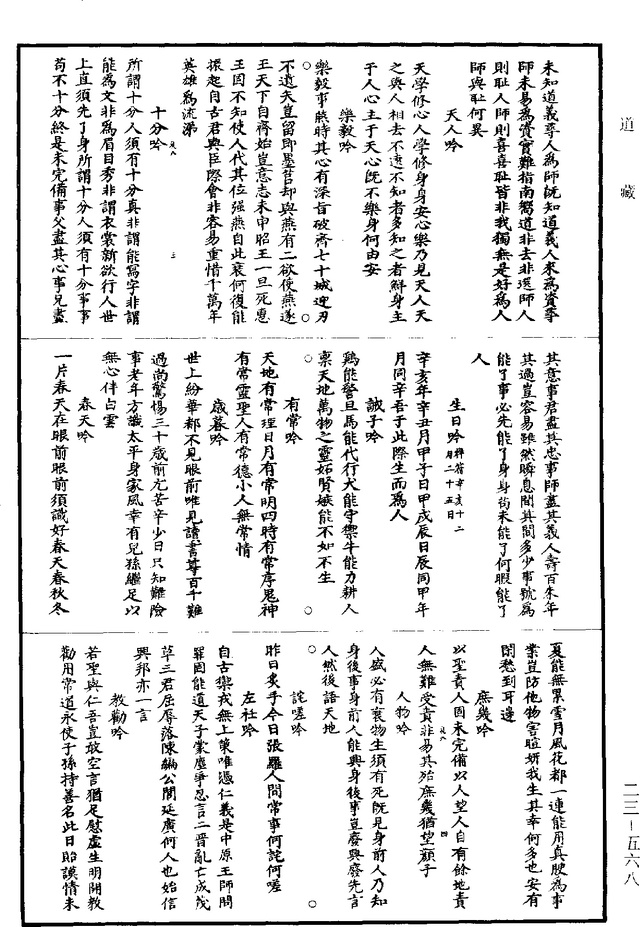 道藏
未知道義尋人為師既知道義人來為資尋
師未易為資實難指南嚮道非去非還師人
則恥人師則喜喜恥皆非我獨無是好為人
師與恥何異
天人吟
天學修心人學修身身安心樂乃見天人天
之與人相去不遠不知者多知之者鮮身主
于人心主于天心既不樂身何由安
樂毅吟
樂毅事燕時其心有深旨破齊七十城迎刃
不遺矢豈留即墨莒却與燕有二欲使燕遂
王天下自齊始豈意志未申昭王一旦死惠
王固不知使人代其位強燕自此衰何復能
振起自古君與臣際會非容易重惜千萬年
英雄為流涕
十分吟
所謂十分人須有十分真非謂能寫字非謂
能為文非為眉目秀非謂衣裳新欲行人世
上直須先了身所謂十分人須有十分事事
苟不十分終是未完備事父盡其心事兄盡
三
其意事君盡其忠事師盡其義人壽百來年
其過豈容易雖然瞬息間其間多少事號為
能了事必先能了身身苟未能了何暇能了
人
生日吟 祥符辛亥十二月二十五日
辛亥年辛丑月甲子日甲戌辰日辰同甲年
月同辛吾于此際生而為人
誡子吟
雞能警旦馬能代行犬能守禦牛能力耕人
稟天地萬物之靈妬賢嫉能不如不生
有常吟
天地有常理日月有常明四時有常序鬼神
有常靈聖人有常德小人無常情
歲暮吟
世上紛華都不見眼前唯見讀書尊百千難
過尚驚惕三十歲前尤苦辛少日只知難險
事老年方識太平身家風幸有兒孫繼足以
無心伴白雲
春天吟
一片春天在眼前眼前須識好春天春秋冬
夏能無累雪月風花都一連能用真腴為事
業豈防他物害暄妍我生其幸何多也安有
閑愁到耳邊
庶幾吟
以聖責人固未完備以人望人自有餘地責
人無難受責非易其殆庶幾猶望顏子
四
人物吟
人盛必有衰物生須有死既見身前人乃知
身後事身前人能興身後事豈廢興廢先言
人然後語天地
詫嗟吟
昨日炙手今日張羅人間常事何詫何嗟
左衽吟
自古禦戎無上策唯憑仁義是中原王師問
罪固能道天子蒙塵爭忍言二晉亂亡成茂
草三君屈辱落陳編公閭延廣何人也始信
興邦亦一言
教勸吟
若聖與仁吾豈敢空言猶足慰虛生明開教
勸用常道永使子孫持善名此日貽謨情未
二三－五六八